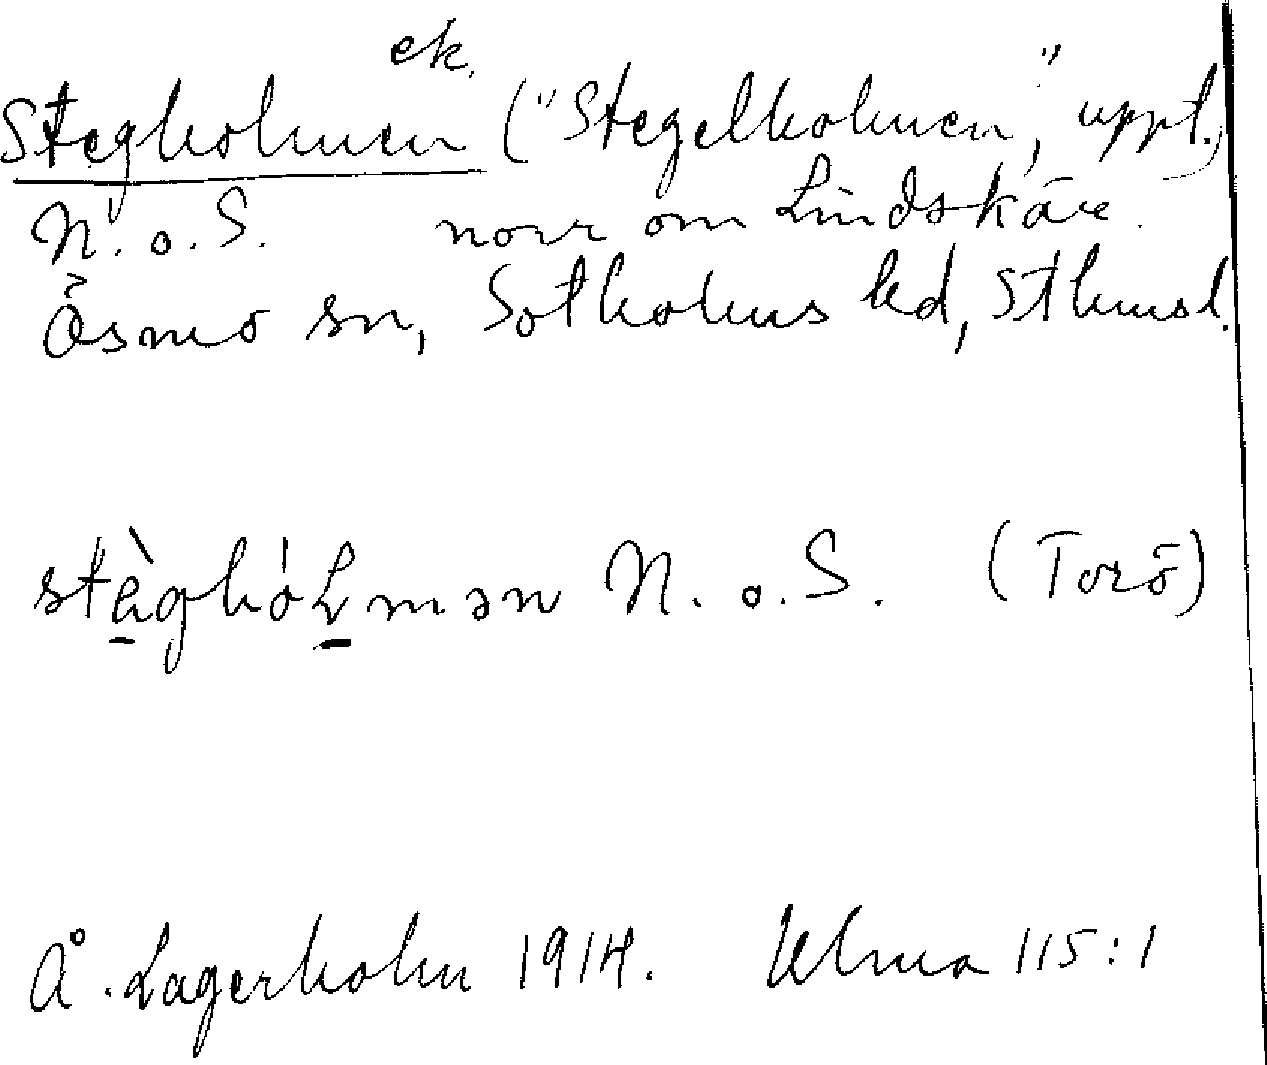 ek.
Stegholmen ("Stegelholmen", uppt.)
N. o. S. norr om Lindskär.
Ösmo sn, Sotholms hd, Sthmsl.
stèghóLmən N. o. S. (Torö)
Å. Lagerholm 1914. Ulma 115:1